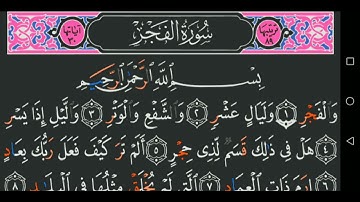 ترتيبها ٨٩ سُورَةُ الْفَجْرِ آياتها ٣٠
بِسْمِ اللَّهِ الرَّحْمَٰنِ الرَّحِيمِ
وَالْفَجْرِ ﴿١﴾ وَلَيَالٍ عَشْرٍ ﴿٢﴾ وَالشَّفْعِ وَالْوَتْرِ ﴿٣﴾ وَاللَّيْلِ إِذَا يَسْرِ
﴿٤﴾ هَلْ فِي ذَٰلِكَ قَسَمٌ لِّذِي حِجْرٍ ﴿٥﴾ أَلَمْ تَرَ كَيْفَ فَعَلَ رَبُّكَ بِعَادٍ
﴿٦﴾ إِرَمَ ذَاتِ الْعِمَادِ ﴿٧﴾ الَّتِي لَمْ يُخْلَقْ مِثْلُهَا فِي الْبِلَادِ ﴿٨﴾